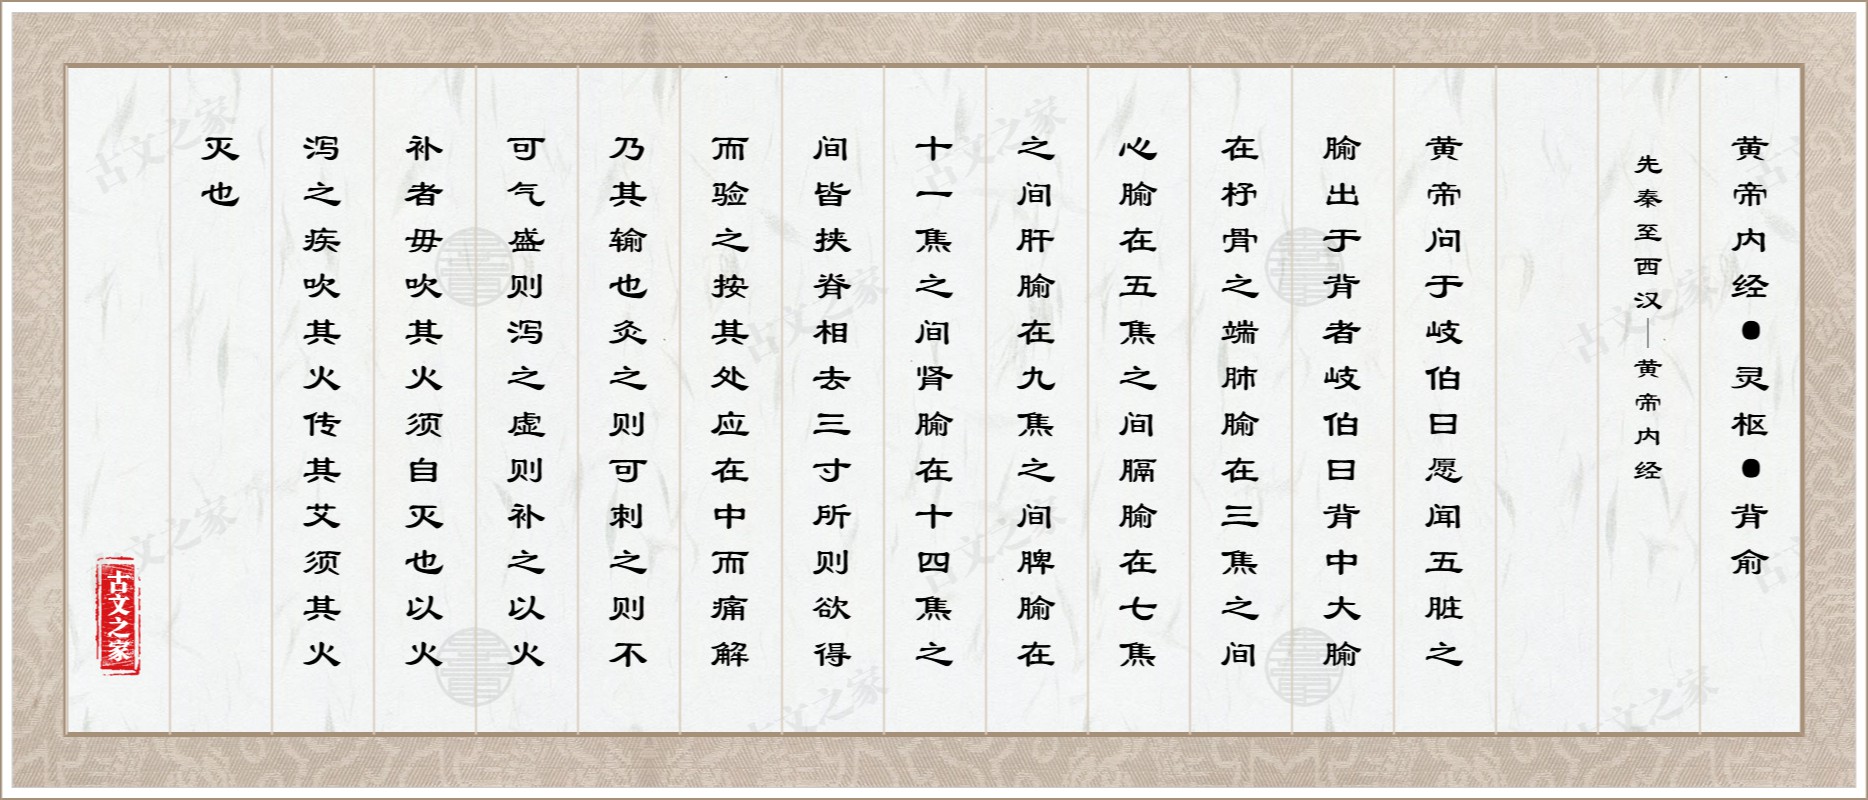 黄帝内经●灵枢●背俞
先秦至西汉—黄帝内经
黄帝问于岐伯曰愿闻五脏之
腧出于背者岐伯曰背中大腧
在杼骨之端肺腧在三焦之间
心腧在五焦之间膈腧在七焦
之间肝腧在九焦之间脾腧在
十一焦之间肾腧在十四焦之
间皆挟脊相去三寸所则欲得
而验之按其处应在中而痛解
乃其输也灸之则可刺之则不
可气盛则泻之虚则补之以火
补者毋吹其火须自灭也以火
泻之疾吹其火传其艾须其火
灭也
古文之家